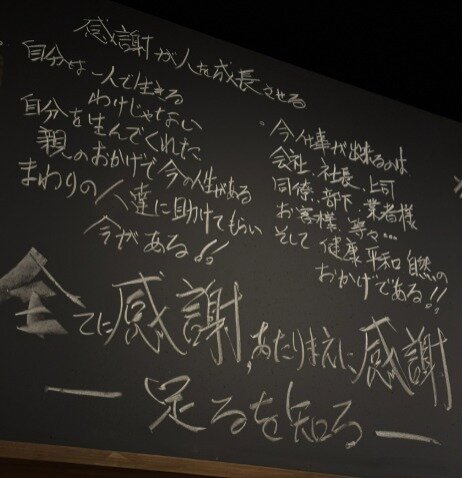 感謝が人を成長させる
自分は一人で生きる
わけじゃない
自分を生んでくれた
親のおかげで今の人生がある
まわりの人達に助けてもらい
今がある!!
今仕事が出来るのは
会社、社長、上司
同僚、部下、業者様
お客様、等々…
そして 健康 平和 自然の
おかげである!!
全てに感謝、あたりまえに感謝
― 足るを知る ―